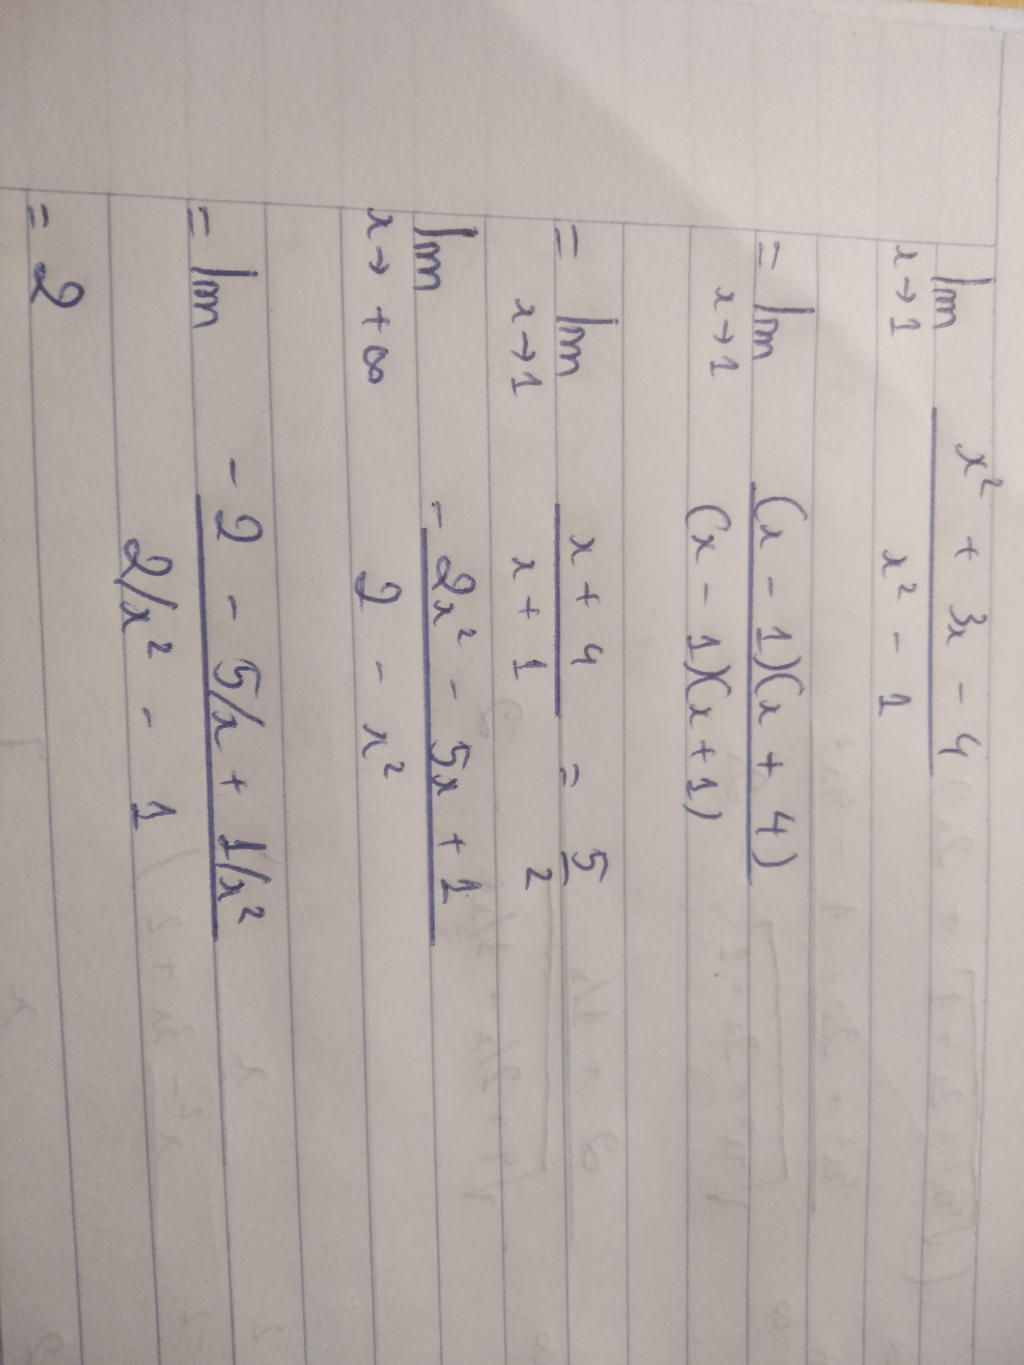 lim x² + 3x - 4
x→1 x² - 1
= lim (x - 1)(x + 4)
x→1 (x - 1)(x + 1)
= lim x + 4 = 5
x→1 x + 1 2
lim - 2x² - 5x + 1
x→ +∞ 2 - x²
= lim - 2 - 5/x + 1/x²
2/x² - 1
= 2